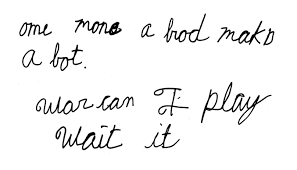 ome mons a bod makes
a bot.
war can I play
wait it